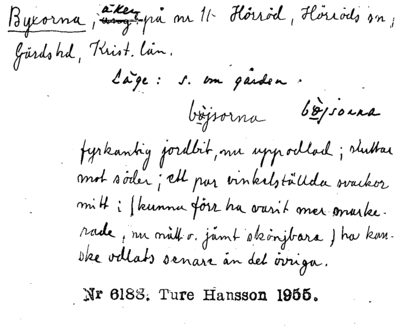 Byxorna, åker på nr 11 Hörröd, Hörröds sn,
Gärds hd, Krist. län.
Läge: s. om gården.
böjsorna böjsorna
fyrkantig jordbit, nu uppodlad; sluttar
mot söder; ett par vinkelställda svackor
mitt i (kunna förr ha varit mer marke-
rade, nu nätt o. jämt skönjbara) ha kan-
ske odlats senare än det övriga.
Nr 6188. Ture Hansson 1955.